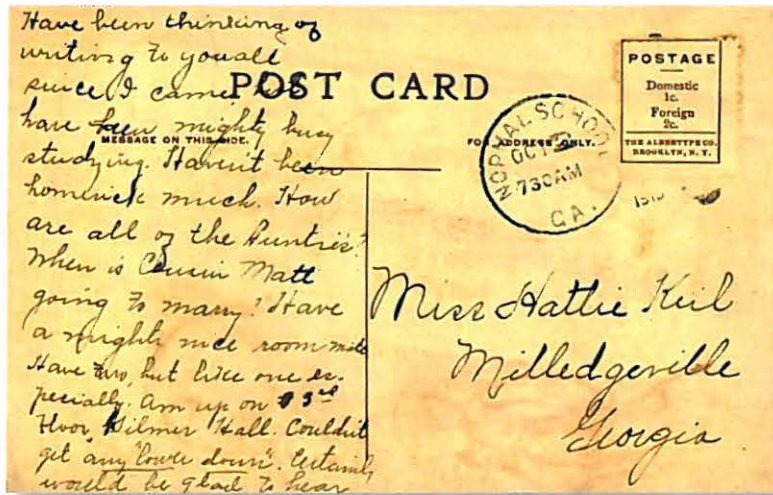 Have been thinking of
writing to you all
since I came, but
have been mighty busy
studying. Haven't been
homesick much. How
are all of the Aunties?
When is Cousin Matt
going to marry? Have
a mighty nice room mate
Have two, but like one es-
pecially. Am up on 3rd
floor, Gilmer Hall. Couldn't
get any "lower down". Certainly
would be glad to hear
POST CARD
MESSAGE ON THIS SIDE.
FOR ADDRESS ONLY.
NORMAL SCHOOL
OCT
730AM
GA.
POSTAGE
Domestic
1c.
Foreign
2c.
THE ALBERTYPE CO.
BROOKLYN, N. Y.
Miss Hattie Keil
Milledgeville
Georgia